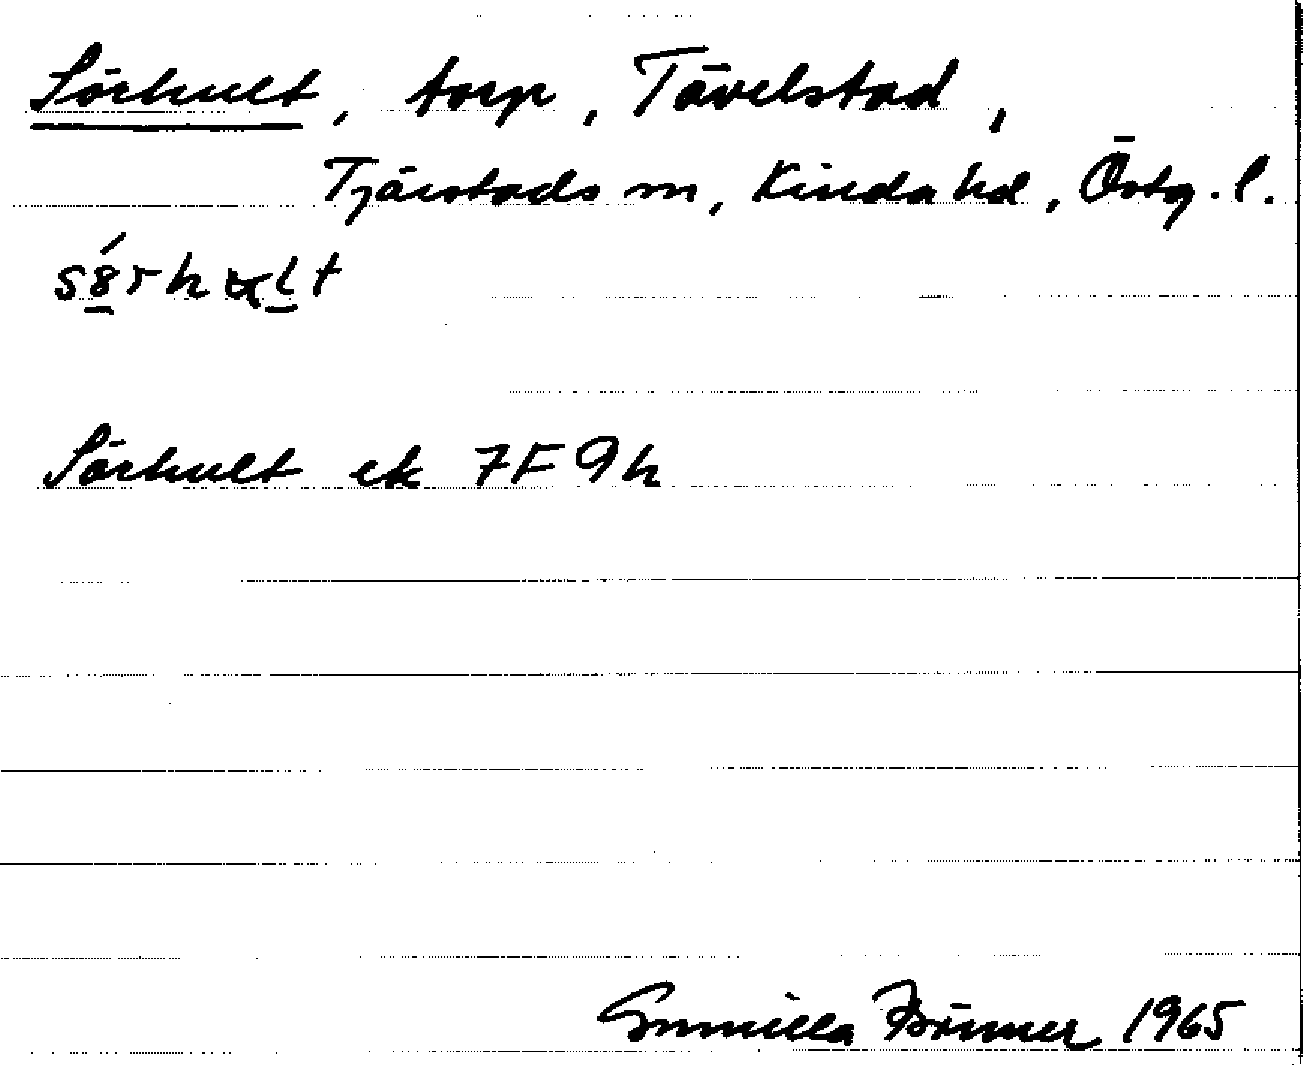 Sörhult, torp, Tävelstad,
Tjärstads sn, Kinda hd, Östg. l.
Sörhult ek 7F 9h
Gunnilla 1965